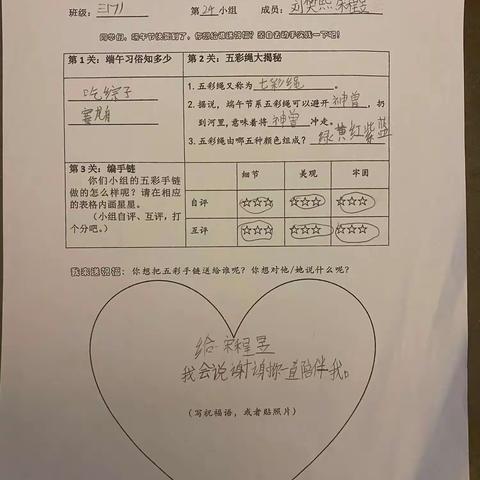 班级：三(7) 第24小组 成员：刘奕熙 宋程昱
同学们，端午节快要到了，你想给谁送祝福？亲自去动手实践一下吧！
第1关：端午习俗知多少
吃粽子
赛龙舟
第2关：五彩绳大揭秘
1. 五彩绳又称为 七彩绳 。
2. 据说，端午节系五彩绳可以避开 神兽 ，扔
到河里，意味着将 神兽 冲走。
3. 五彩绳由哪五种颜色组成？ 绿黄红紫蓝
第3关：编手链
你们小组的五彩手链
做的怎么样呢？请在相应
的表格内画星星。
（小组自评、互评，打
个分吧。）
细节 美观 牢固
自评 ☆☆☆ ☆☆☆ ☆☆☆
互评 ☆☆☆ ☆☆☆ ☆☆☆
我来送祝福：你想把五彩手链送给谁呢？你想对他/她说什么呢？
给宋程昱
我会说谢谢你一直陪伴我。
（写祝福语，或者贴照片）